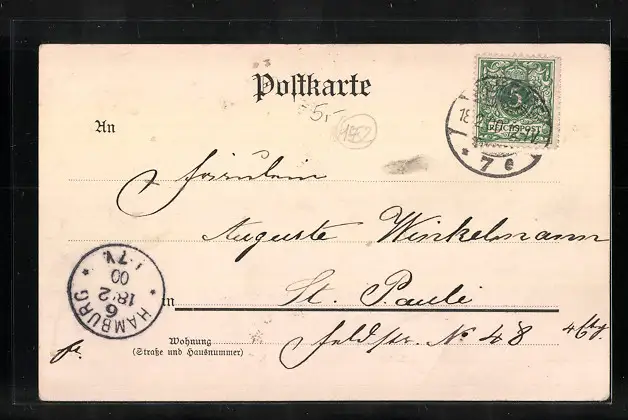 Postkarte
5,-
1852
An
5
REICHSPOST
18.2
* 7 e
Fräulein
Auguste Winkelmann
in St. Pauli
HAMBURG
6
18 2
00
Wohnung
(Straße und Hausnummer)
Feldstr. No 48
fr.